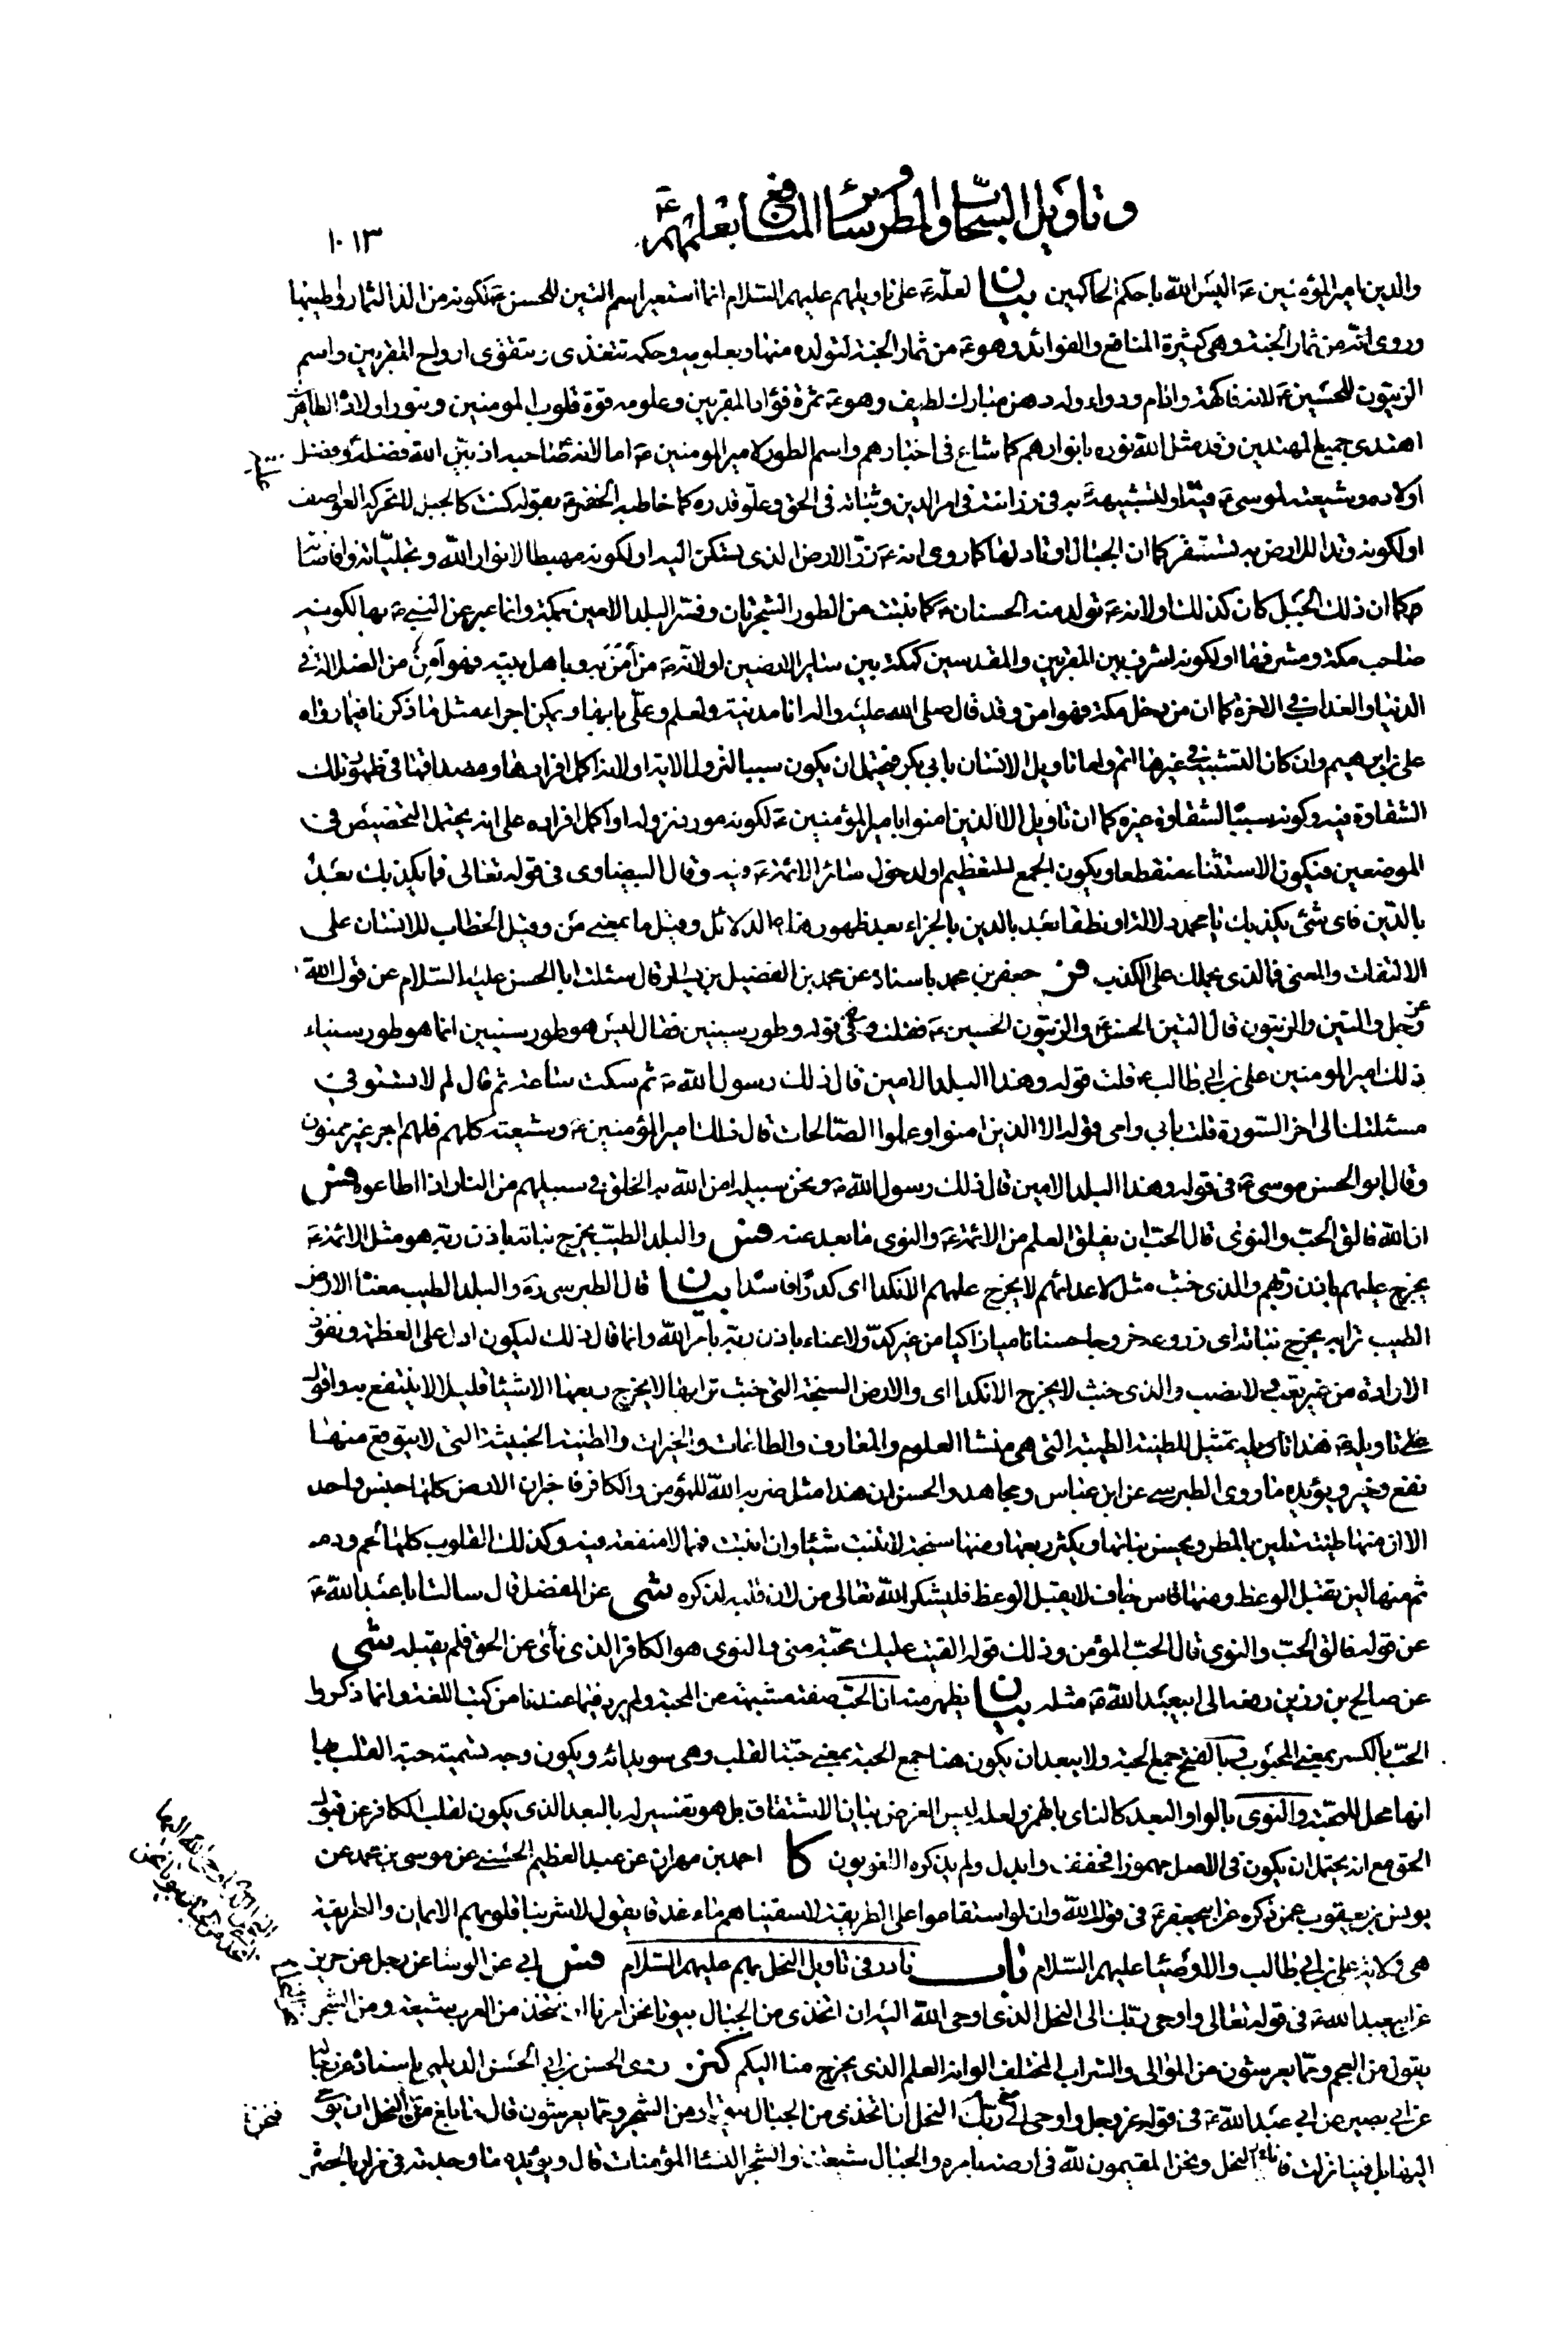 وتاويل السحاب والمطر وسائر المنافع بعلمهم ع
١٠١٣
والدين امير المؤمنين ع اليس الله باحكم الحاكمين بيان لعله ع على تاويلهم عليهم السلام انما استعير اسم التين للحسن ع لكونه من الذ الثمار واطيبها
وروى انه من ثمار الجنة وهى كثيرة المنافع والفوائد وهو ع من ثمار الجنة لتولده منها وبعلومه وحكمه تتغذى وتتقوى ارواح المقربين واسم
الزيتون للحسين ع لانه فاكهة وادام ودواء وله دهن مبارك لطيف وهو ع ثمرة فؤاد المقربين وعلومه قوة قلوب المومنين وبنور اولاده الطاهرين
اهتدى جميع المهتدين وقد مثل الله نوره بانوارهم كما شاع فى اخبارهم واسم الطور لامير المومنين ع اما لانه صاحبه اذ بين الله فضله وفضل
اولاده وشيعته لموسى ع فيه او لتشبيهه به فى رزانته فى امر الدين وثباته فى الحق وعلو قدره كما خاطبه الخضر ع بقوله كنت كالجبل لا تحركه العواصف
او لكونه وتدا للارض به تستقر كما ان الجبال اوتاد لها كما روى انه ع زر الارض الذى تسكن اليه او لكونه مهبطا لانوار الله وتجلياته وافاضاته
كما ان ذلك الجبل كان كذلك او لانه ع تولد منه الحسنان ع كما نبتت من الطور الشجرتان وفسر البلد الامين بمكة وانما عبر عن النبي ص بها لكونه
صاحب مكة ومشرفها او لكونه لشرفه بين المقربين والمقدسين كمكة بين سائر الارضين او لانه ص من آمن به وباهل بيته فهو آمن من الضلالة فى
الدنيا والعذاب فى الاخرة كما ان من دخل مكة فهو امن وقد قال صلى الله عليه واله انا مدينة العلم وعلى بابها ويمكن اجراء مثل ما ذكرنا فيما رواه
على بن ابرهيم وان كان التشبيه فى غيرها اتم واما تاويل الانسان بابي بكر فيحتمل ان يكون سببا لنزول الاية او لانه اكمل افرادها ومصداقها فى ظهور تلك
الشقاوة فيه وكونه سببا لشقاوة غيره كما ان تاويل الا الذين امنوا بامير المؤمنين ع لكونه مورد نزوله او اكمل افراده على انه يحتمل التخصيص فى
الموضعين فيكون الاستثناء منقطعا ويكون الجمع للتعظيم او لدخول سائر الائمة ع فيه وقال البيضاوى فى قوله تعالى فما يكذبك بعد
بالدين فاى شئ يكذبك يا محمد دلالة او نطقا بعد بالدين بالجزاء بعد ظهور هذه الدلائل وقيل ما بمعنى من وقيل الخطاب للانسان على
الالتفات والمعنى فما الذى يحملك على الكذب فر جعفر بن محمد باسناده عن محمد بن الفضيل بن يسار قال سئلت ابا الحسن عليه السلام عن قول الله
عز وجل والتين والزيتون قال التين الحسن ع والزيتون الحسين ع فقلت وفى قوله وطور سينين فقال ليس هو طور سينين انما هو طور سيناء
ذلك امير المومنين على بن ابي طالب ع قلت قوله وهذا البلد الامين قال ذلك رسول الله ص ثم سكت ساعة ثم قال لم لا تستوفى
مسئلتك الى اخر السورة قلت بابي وامى قوله الا الذين امنوا وعملوا الصالحات قال ذلك امير المؤمنين ع وشيعته كلهم فلهم اجر غير ممنون
وقال ابو الحسن موسى ع فى قوله وهذا البلد الامين قال ذلك رسول الله ص ونحن سبيله امن الله به الخلق فى سبيلهم من النار اذا اطاعوه فس
ان الله فالق الحب والنوى قال الحب ان يفلق العلم من الائمة ع والنوى ما بعد عنه فس والبلد الطيب يخرج نباته باذن ربه هو مثل الائمة ع
يخرج علمهم باذن ربهم والذى خبث مثل لاعدائهم لا يخرج علمهم الا نكدا اى كدرا فاسدا بيان قال الطبرسى ره والبلد الطيب معناه الارض
الطيب ترابه يخرج نباته اى زروعه خروجا حسنا ناميا زاكيا من غير كد ولا عناء باذن ربه بامر الله وانما قال ذلك ليكون ادل على العظمة ونفوذ
الارادة من غير تعب ولا نصب والذى خبث لا يخرج الا نكدا اى والارض السبخة التى خبث ترابها لا يخرج ريعها الا شيئا قليلا لا ينتفع به واقول
على تاويله ع هذا تاويله تمثيل للطينة الطيبة التى هى منشا العلوم والمعارف والطاعات والخيرات والطينة الخبيثة التى لا يتوقع منها
نفع وخير ويؤيده ما روى الطبرسى عن ابن عباس ومجاهد والحسن ان هذا مثل ضربه الله للمؤمن والكافر فاخبر ان الارض كلها جنس واحد
الا ان منها طيبة تلين بالمطر ويحسن نباتها ويكثر ريعها ومنها سبخة لا تنبت شيئا وان انبتت فمما لا منفعة فيه وكذلك القلوب كلها لحم ودم
ثم منها لين يقبل الوعظ ومنها قاس جاف لا يقبل الوعظ فليشكر الله تعالى من لان قلبه لذكره شى عن المفضل قال سالت ابا عبد الله ع
عن قوله فالق الحب والنوى قال الحب المؤمن وذلك قوله القيت عليك محبة منى والنوى هو الكافر الذى نأى عن الحق فلم يقبله شى
عن صالح بن رزين رفعه الى ابيعبد الله ع مثله بيان يظهر منه ان الحب صفة مشبهة من المحبة ولم يرد فيما عندنا من كتب اللغة وانما ذكروا
الحب بالكسر بمعنى المحبوب وبالفتح جمع الحبة ولا يبعد ان يكون هنا جمع الحبة بمعنى حبة القلب وهى سويدائه ويكون وجه تسمية حبة القلب بها
انها محل للمحبة والنوى بالواو البعد كالنأى بالهمز ولعله ليس الغرض بيان الاشتقاق بل هو تفسير له بالبعد الذى يكون لقلب الكافر عن قبول
الحق مع انه يحتمل ان يكون فى الاصل مهموزا فخفف وابدل ولم يذكره اللغويون كا احمد بن مهران عن عبد العظيم الحسنى عن موسى بن محمد عن
يونس بن يعقوب عمن ذكره عن ابيجعفر ع فى قول الله وان لو استقاموا على الطريقة لاسقيناهم ماء غدقا يقول لاشربنا قلوبهم الايمان والطريقة
هى ولاية على بن ابي طالب والاوصياء عليهم السلام باب نادر فى تاويل النحل بهم عليهم السلام فس ابي عن الوشا عن رجل عن حريز
عن ابيعبد الله ع فى قوله تعالى واوحى ربك الى النحل الذى اوحى الله اليه ان اتخذى من الجبال بيوتا نحن امرنا ان نتخذ من العرب شيعة ومن الشجر
يقول من العجم ومما يعرشون من الموالى والشراب المختلف الوانه العلم الذى يخرج منا اليكم كنز روى الحسن بن ابي الحسن الديلمى باسناده عن
عن ابي بصير عن ابي عبد الله ع فى قوله عز وجل واوحى ربك الى النحل ان اتخذى من الجبال بيوتا ومن الشجر ومما يعرشون قال ما بلغ من النحل ان يوحى
اليها بل فينا نزلت فنحن النحل ونحن المقيمون لله فى ارضه بامره والجبال شيعتنا والشجر النساء المؤمنات قال ويؤيده ما وجدته فى مزار بالحضرة